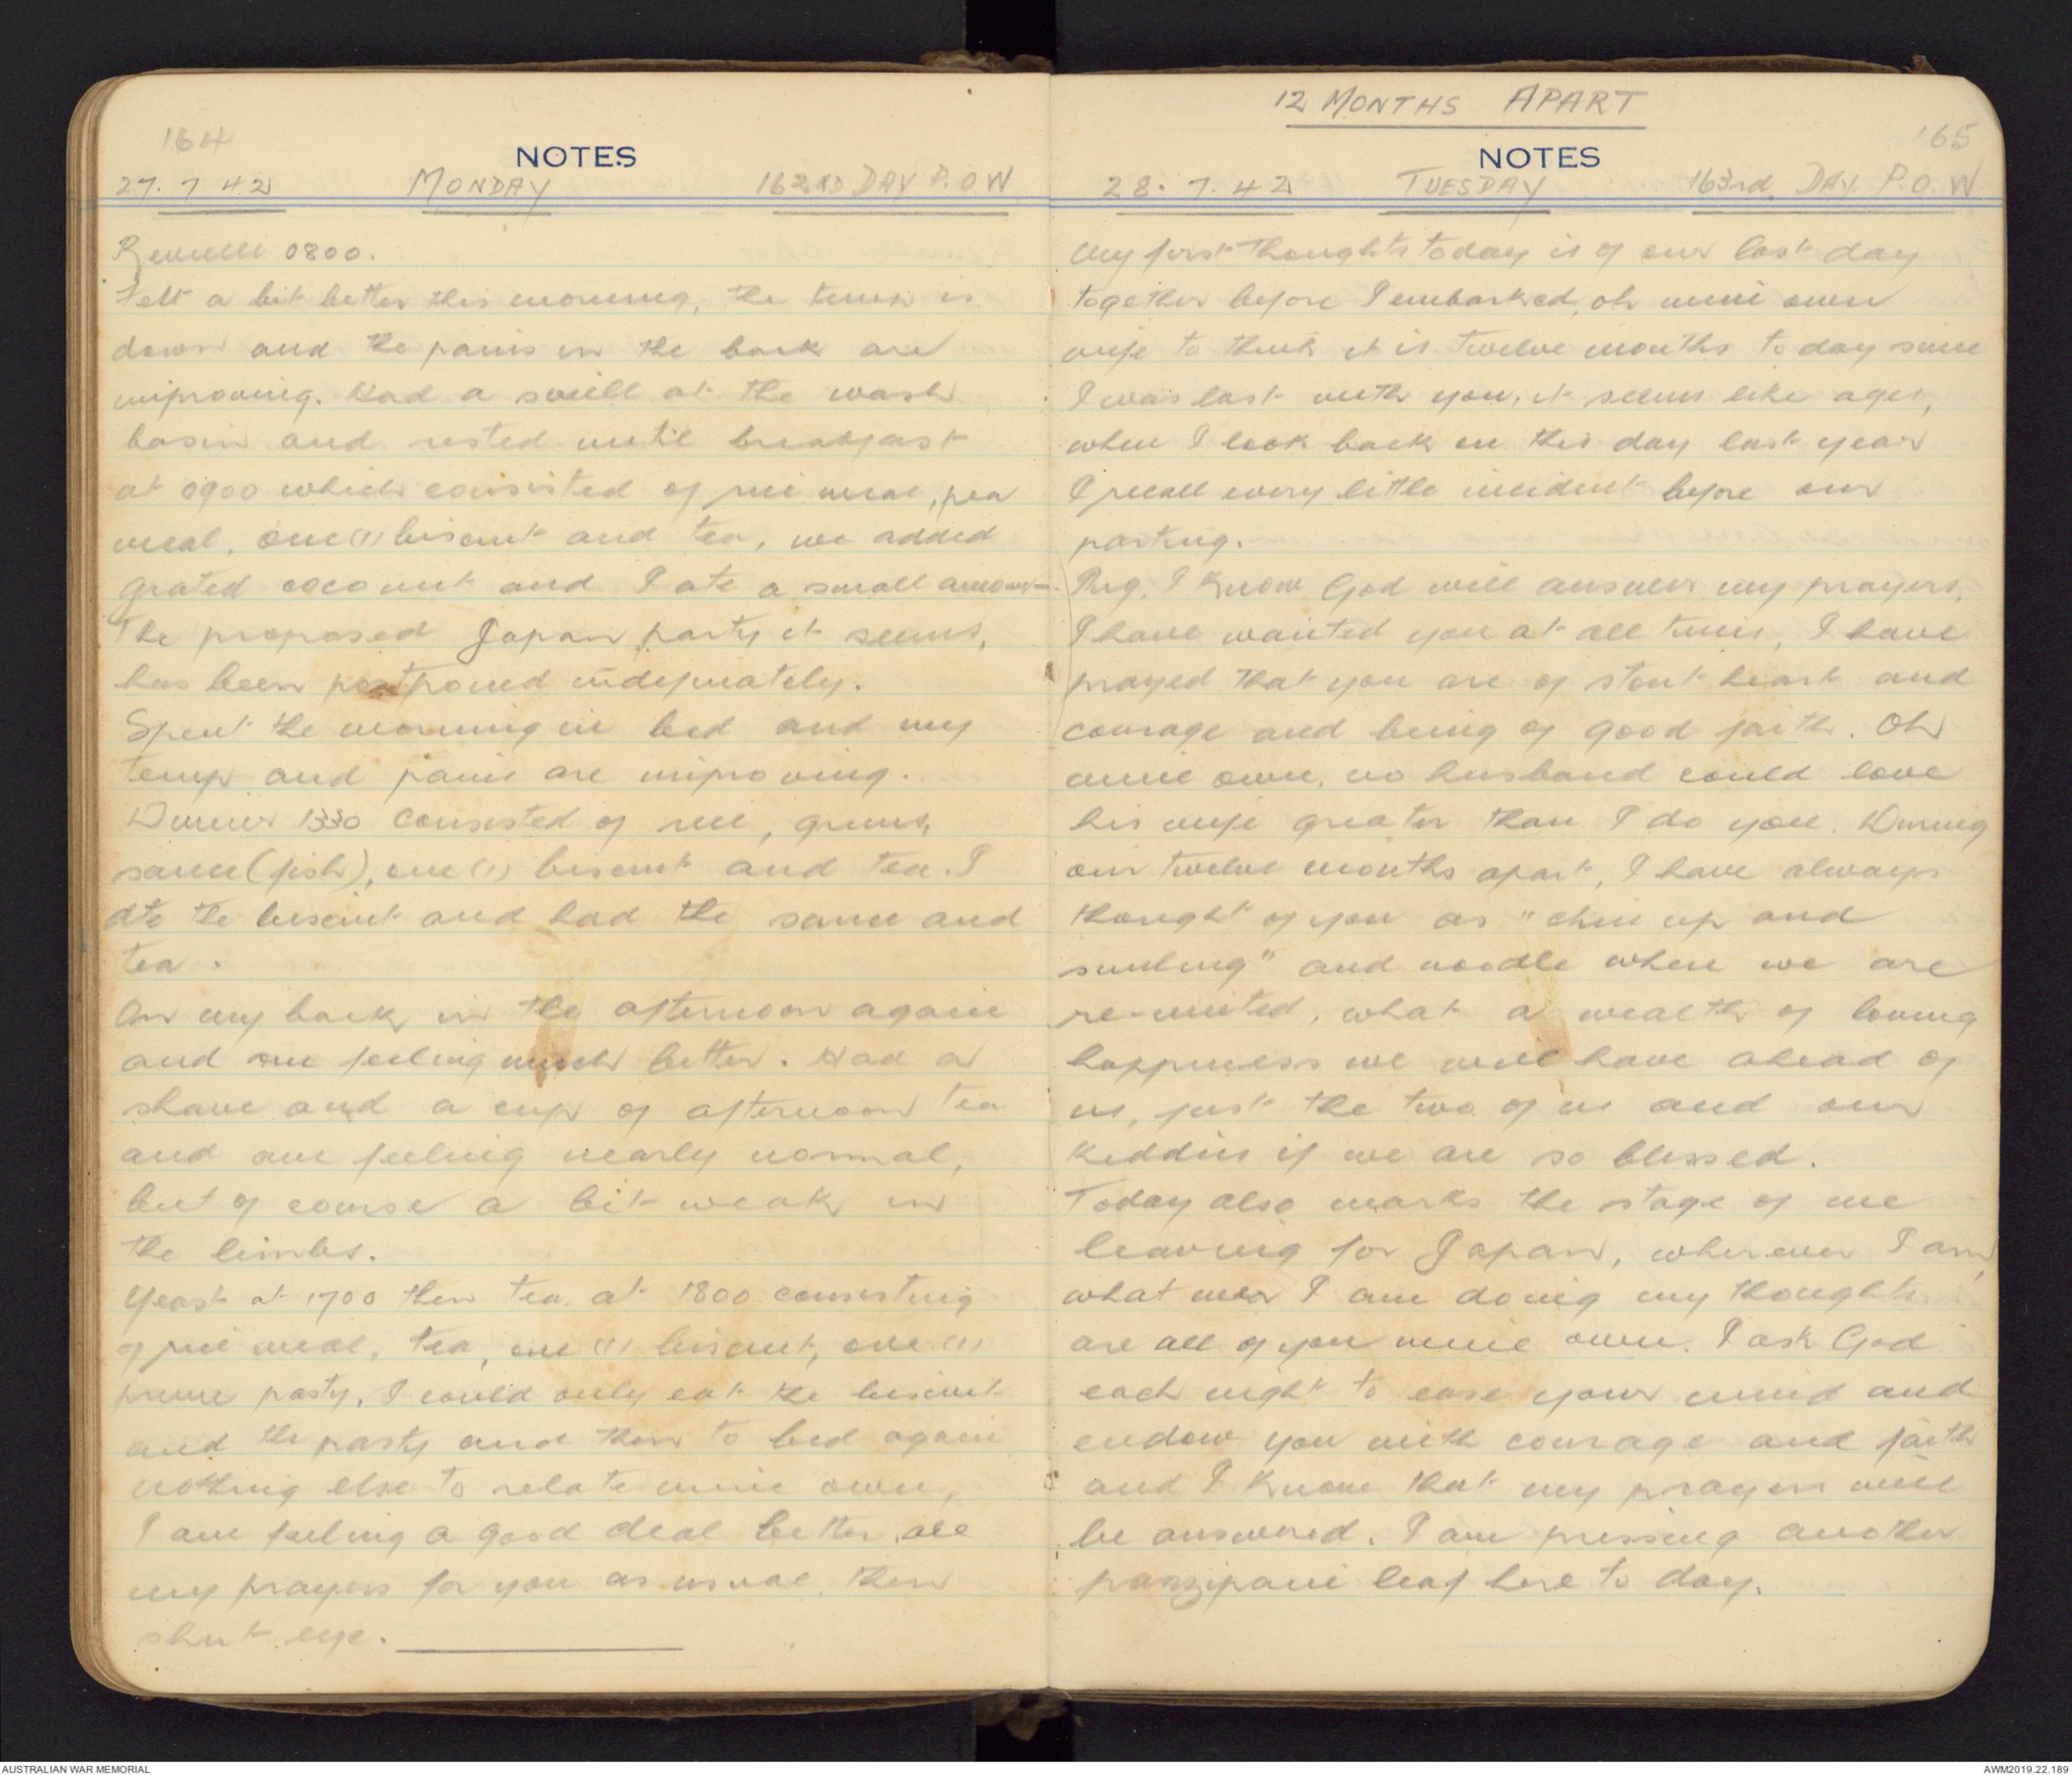 164
NOTES
27. 7 42 MONDAY 162ND DAY P.O.W
Reveille 0800.
Felt a bit better this morning, the temp is
down and the pains in the back are
improving. Had a swill at the wash
basin and rested until breakfast
at 0900 which consisted of rice meal, pea
meal, one (1) biscuit and tea, we added
grated coconut and I ate a small amount
The proposed Japan party it seems,
has been postponed indefinately.
Spent the morning in bed and my
temp and pains are improving.
Dinner 1330 consisted of rice, greens,
sauce (fish), one (1) biscuit and tea. I
ate the biscuit and had the sauce and
tea.
On my back in the afternoon again
and am feeling much better. Had a
shave and a cup of afternoon tea
and am feeling nearly normal,
but of course a bit weak in
the limbs.
Yeast at 1700 then tea at 1800 consisting
of rice meal, tea, one (1) biscuit, one (1)
prune pasty, I could only eat the biscuit
and the pasty and then to bed again
nothing else to relate mine own,
I am feeling a good deal better, all
my prayers for you as usual, then
shut eye.
12 MONTHS APART
165
NOTES
28. 7. 42 TUESDAY 163rd DAY. P.O.W
My first thoughts today is of our last day
together before I embarked, oh mine own
wife to think it is twelve months today since
I was last with you, it seems like ages,
when I look back on this day last year
I recall every little incident before our
parting.
I know God will answer my prayers,
I have wanted you at all times, I have
prayed that you are of stout heart and
courage and being of good faith. Oh
mine own, no husband could love
his wife greater than I do you. During
our twelve months apart, I have always
thought of you as "chin up and
smiling" and noodle when we are
re-united, what a wealth of loving
happiness we will have ahead of
us, just the two of us and our
kiddies if we are so blessed.
Today also marks the stage of me
leaving for Japan, wherever I am,
what ever I am doing my thoughts
are all of you mine own. I ask God
each night to ease your mind and
endow you with courage and faith
and I know that my prayers will
be answered. I am pressing another
frangipani leaf here to day.
AUSTRALIAN WAR MEMORIAL
AWM2019.22.189